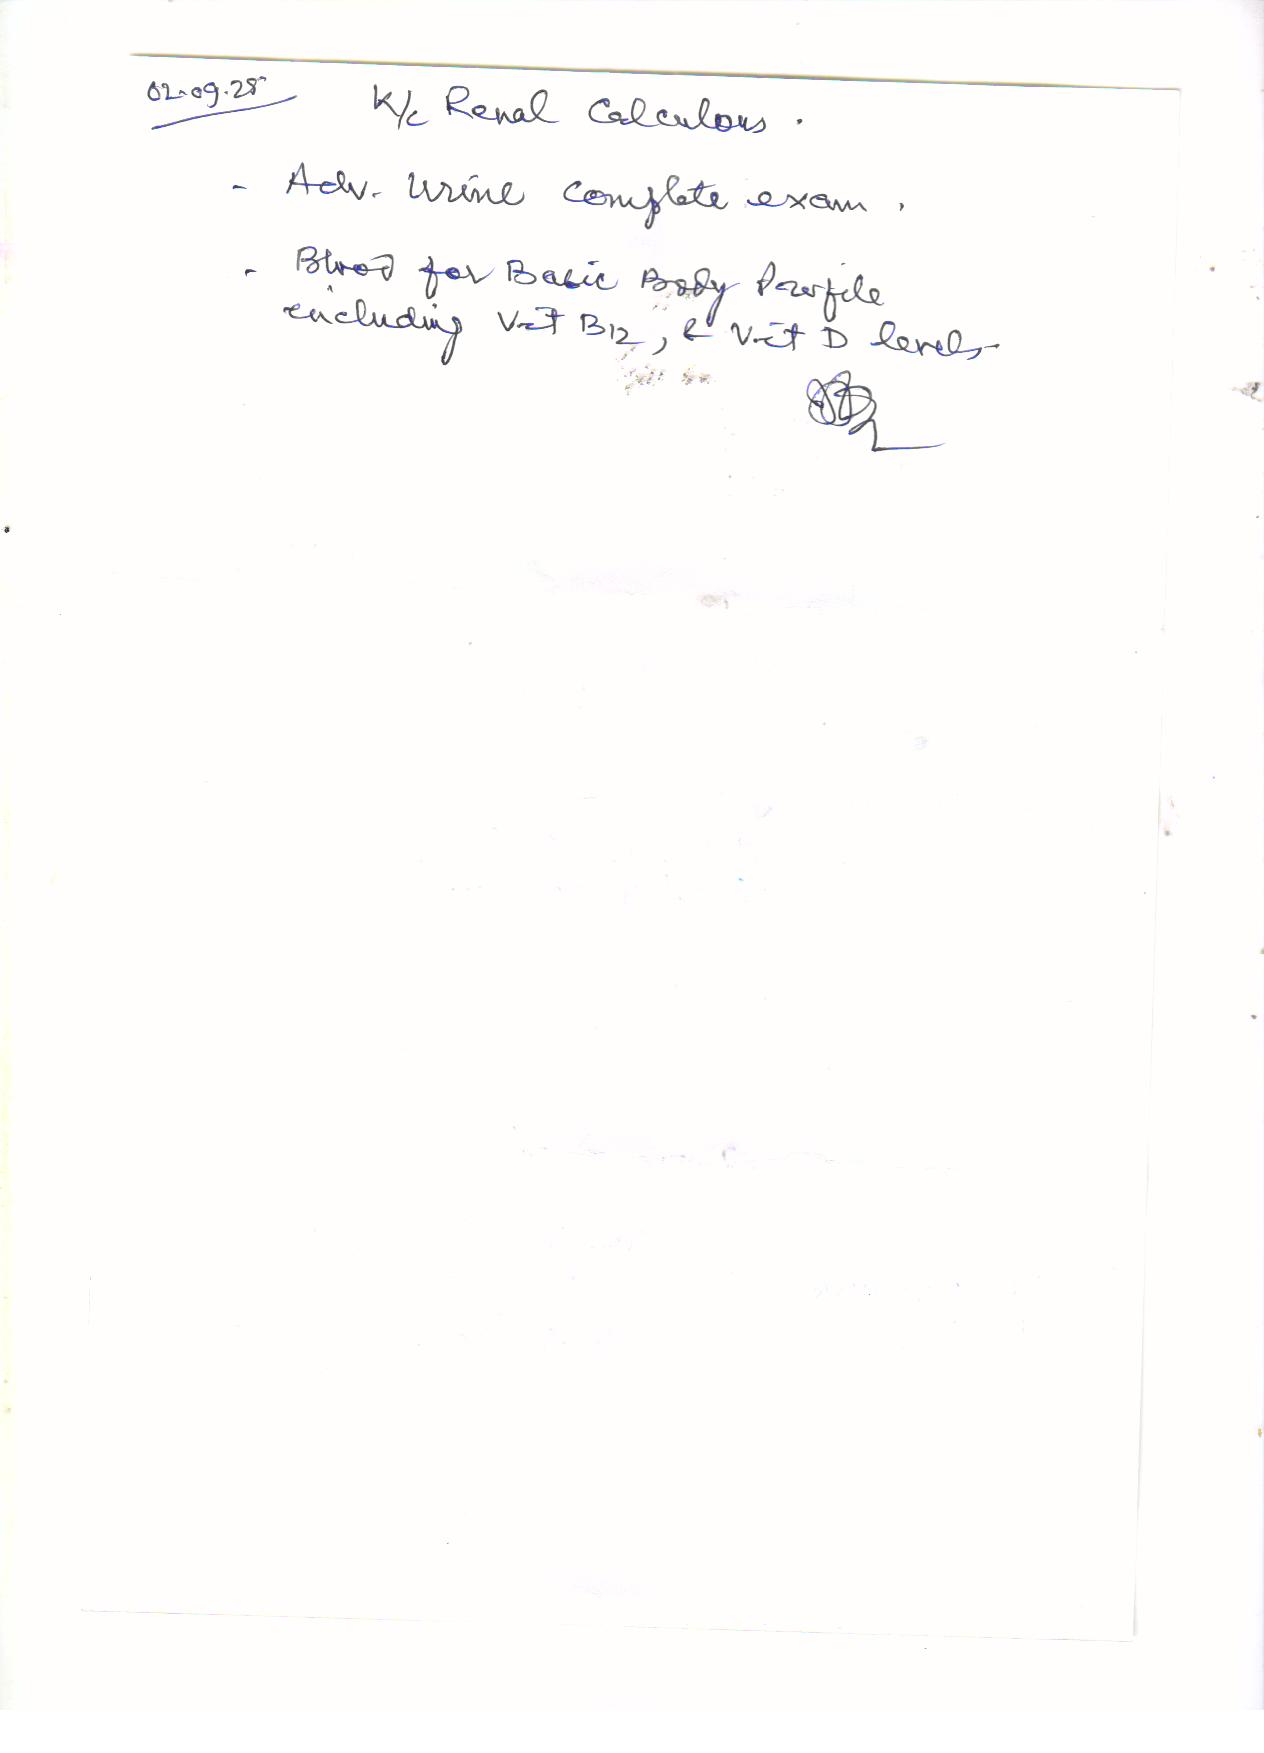 02.09.25 K/c Renal Calculous.
- Adv. Urine complete exam.
- Blood for Basic Body Porfile
including Vit B12, & Vit D levels